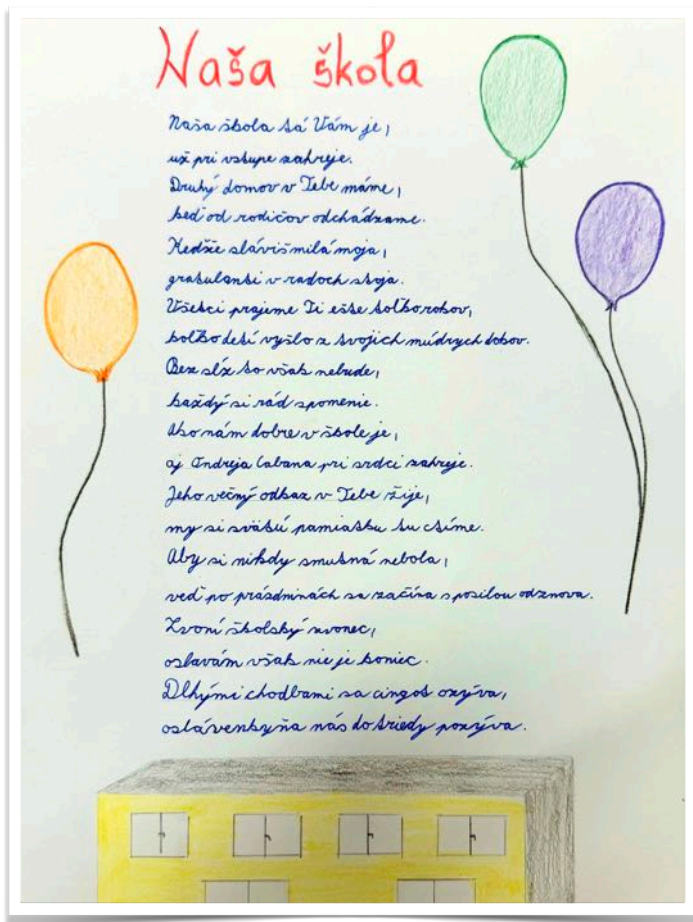 Naša škola
Naša škola tá Vám je,
už pri vstupe zahreje.
Druhý domov v Tebe máme,
keď od rodičov odchádzame.
Keďže sláviš milá moja,
gratulanti v radoch stoja.
Všetci prajeme Ti ešte toľko rokov,
koľko detí vyšlo z tvojich múdrych dokov.
Bez sĺz to však nebude,
každý si rád spomenie.
Ako nám dobre v škole je,
aj Andreja Cabana pri srdci zahreje.
Jeho večný odkaz v Tebe žije,
my si svätú pamiatku tu ctíme.
Aby si nikdy smutná nebola,
veď po prázdninách sa začína s posilou odznova.
Zvoní školský zvonec,
oslavám však nie je koniec.
Dlhými chodbami sa cingot ozýva,
oslávenkyňa nás do triedy pozýva.